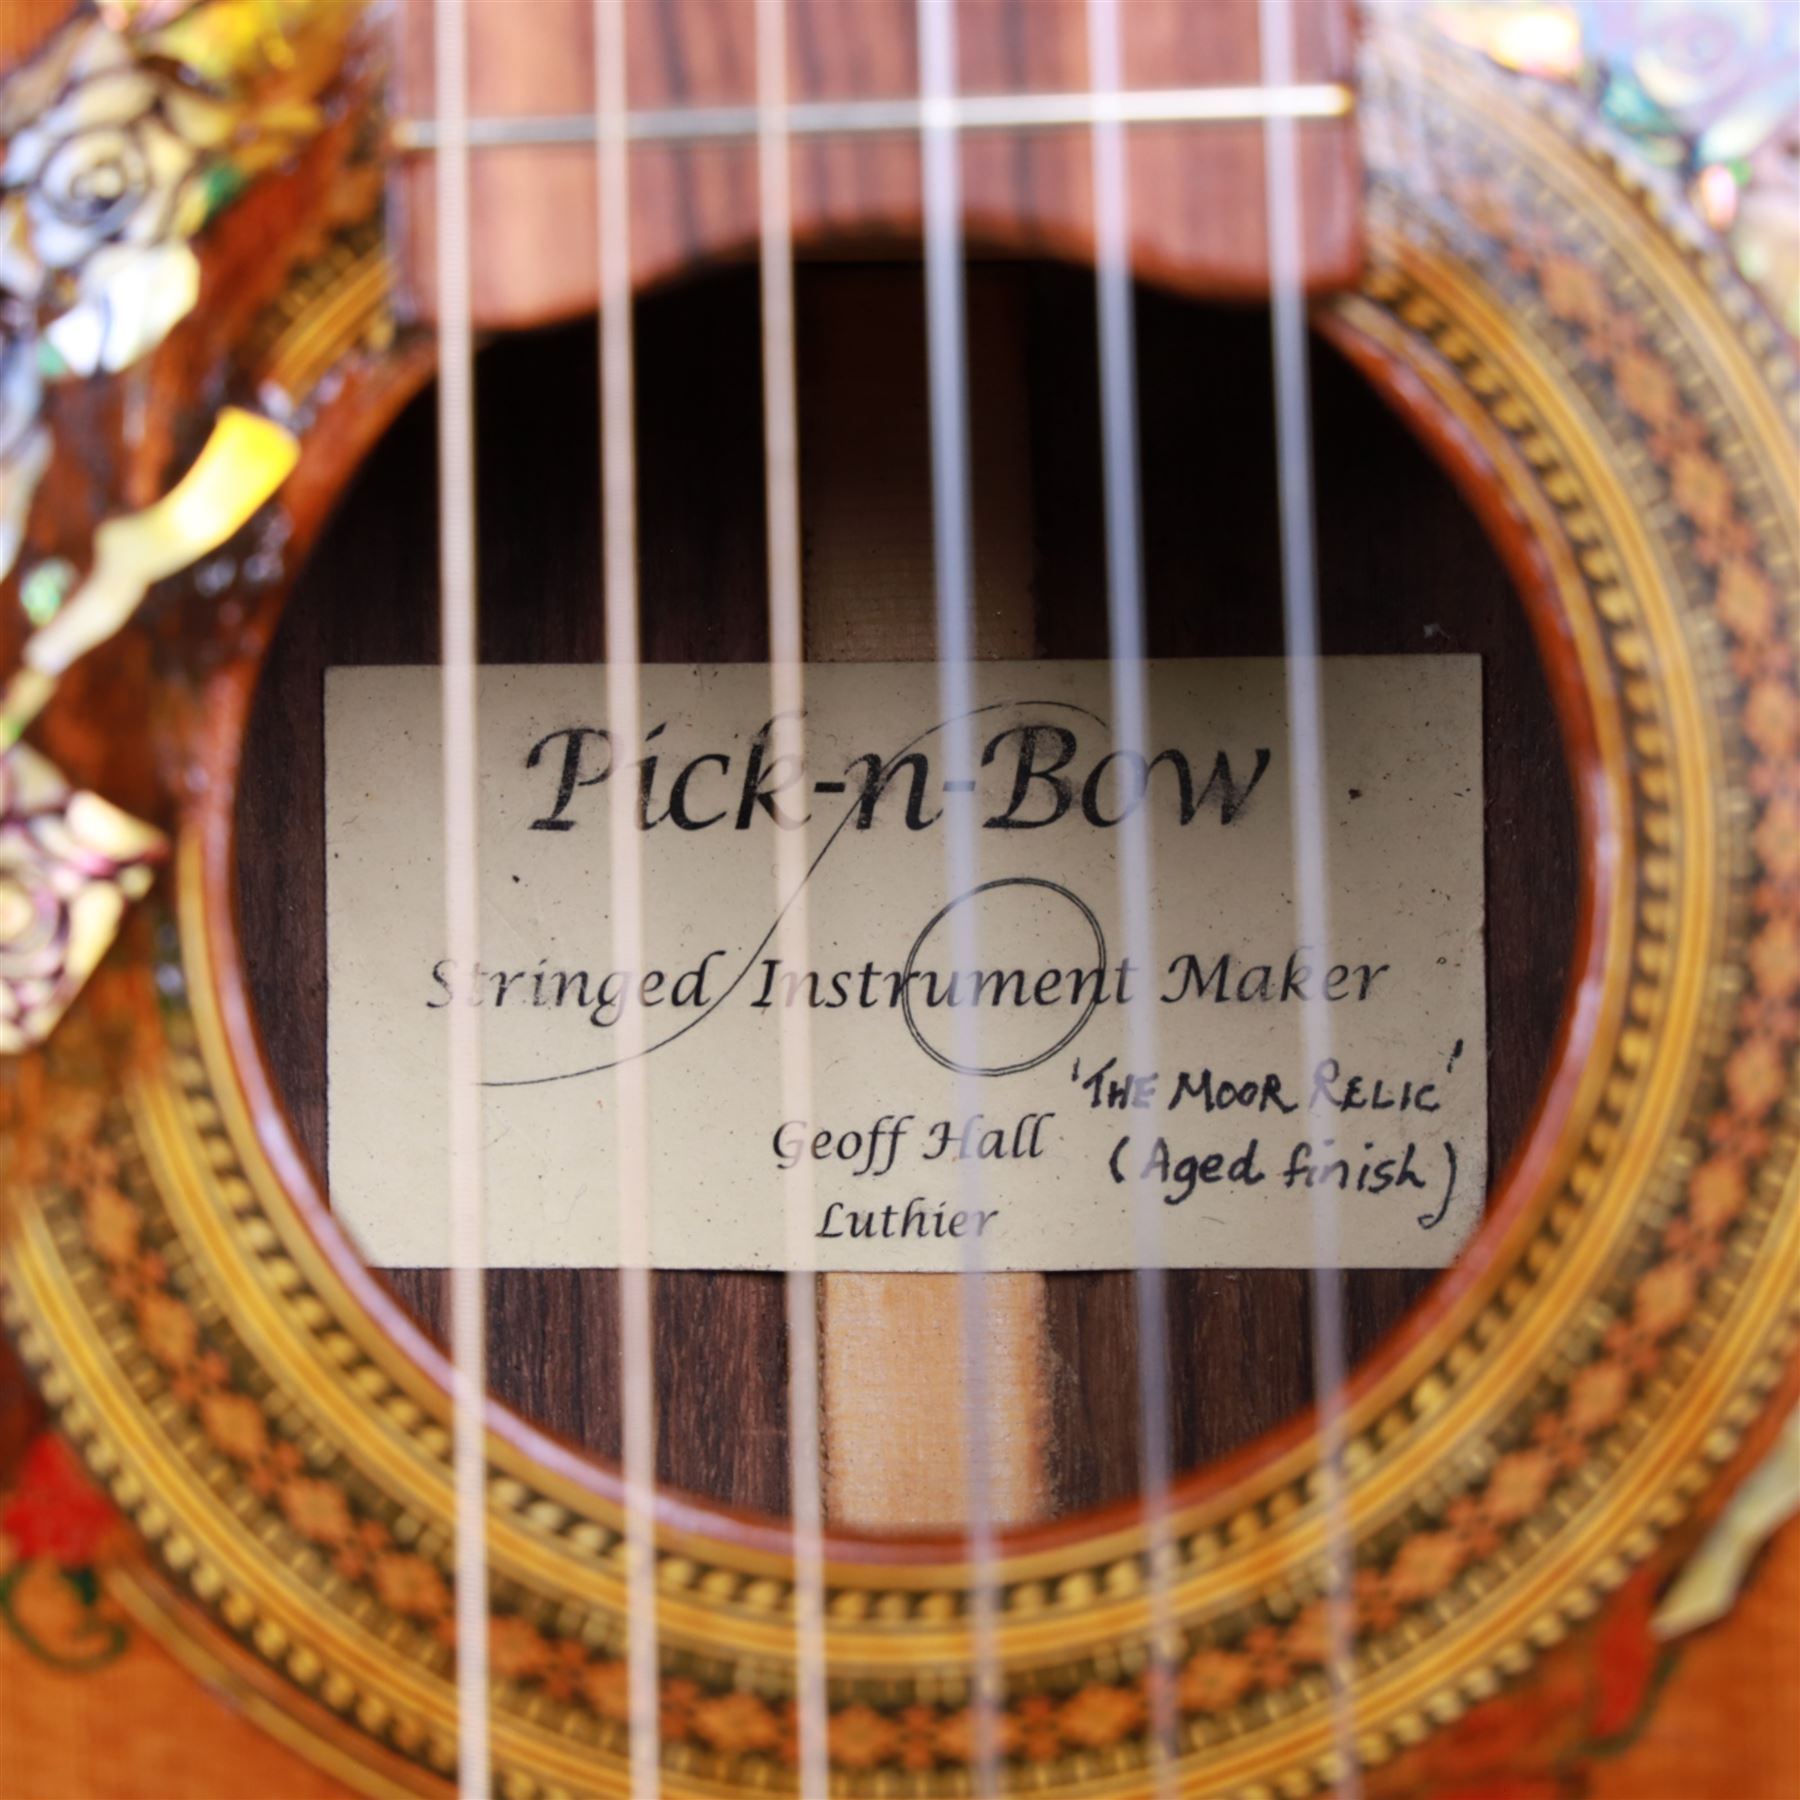 Pick-n-Bow
Stringed Instrument Maker
'THE MOOR RELIC'
Geoff Hall
(Aged finish)
Luthier